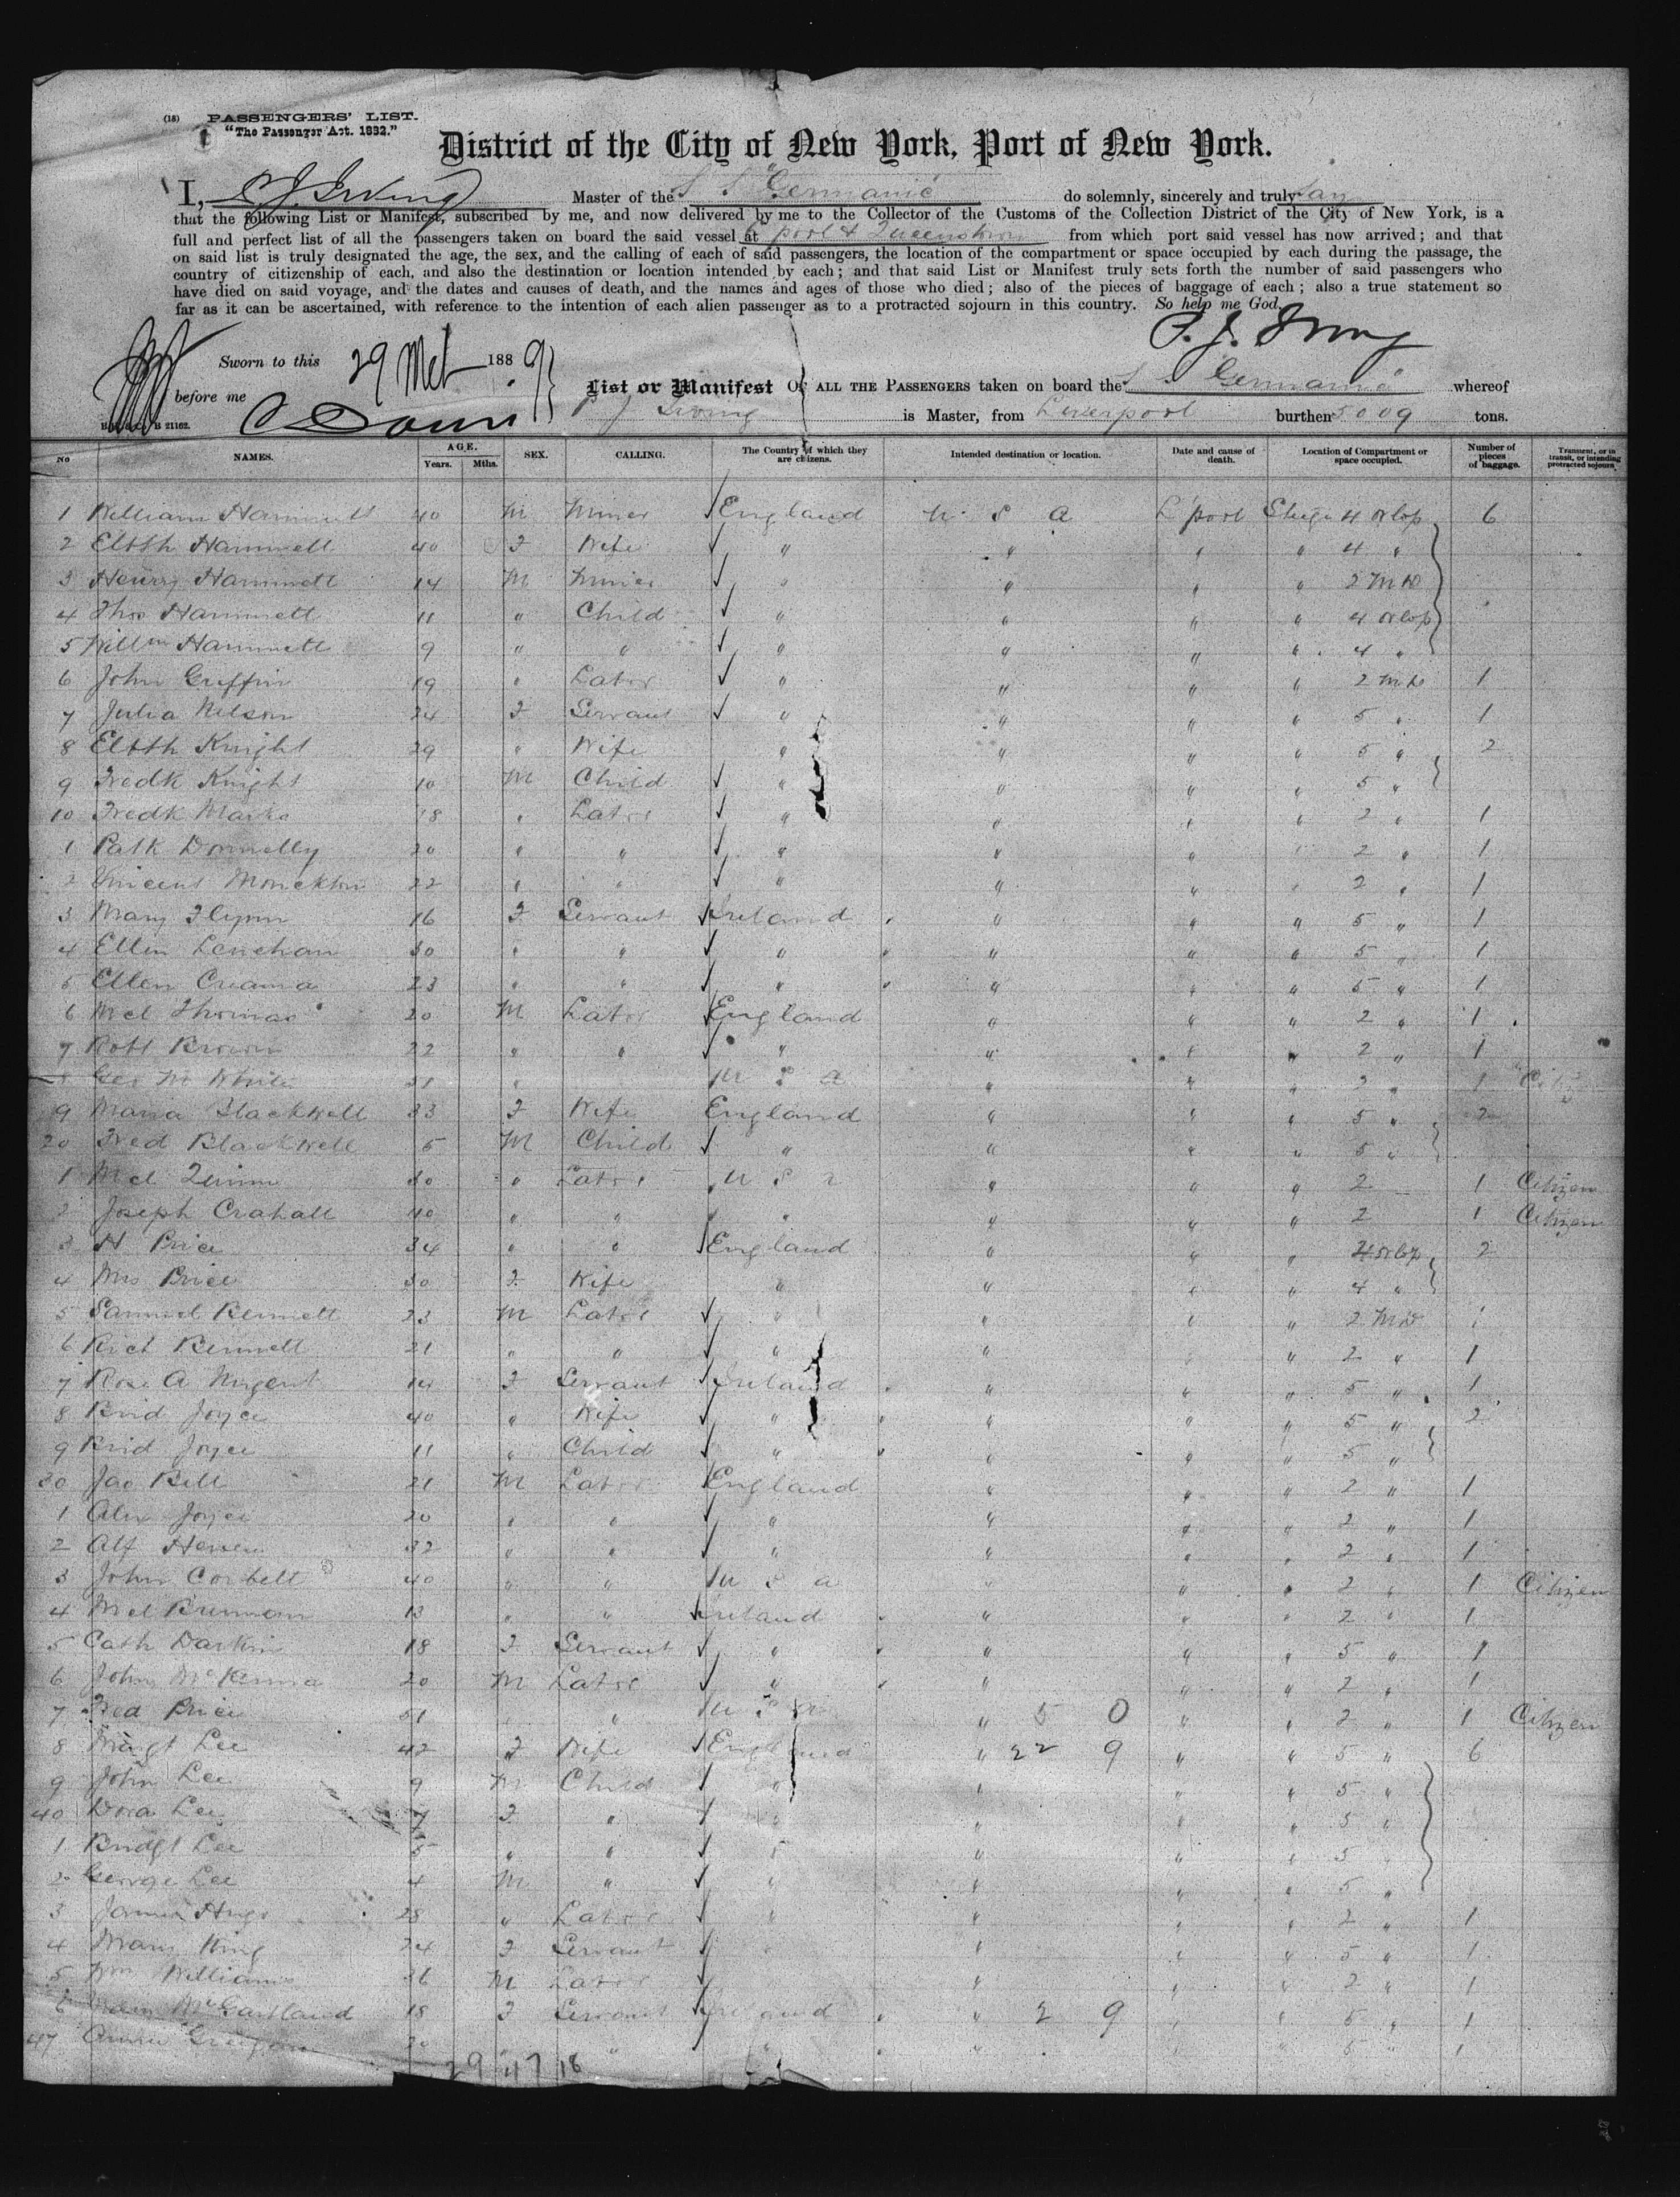 (18) PASSENGERS' LIST.
"The Passenger Act. 1882."
District of the City of New York, Port of New York.
I, P. J. Irving Master of the S S Germanic do solemnly, sincerely and truly say
that the following List or Manifest, subscribed by me, and now delivered by me to the Collector of the Customs of the Collection District of the City of New York, is a
full and perfect list of all the passengers taken on board the said vessel at L'pool & Queenstown from which port said vessel has now arrived; and that
on said list is truly designated the age, the sex, and the calling of each of said passengers, the location of the compartment or space occupied by each during the passage, the
country of citizenship of each, and also the destination or location intended by each; and that said List or Manifest truly sets forth the number of said passengers who
have died on said voyage, and the dates and causes of death, and the names and ages of those who died; also of the pieces of baggage of each; also a true statement so
far as it can be ascertained, with reference to the intention of each alien passenger as to a protracted sojourn in this country. So help me God.
P. J. Irving
Sworn to this 29 Mch 1889
before me
List or Manifest OF ALL THE PASSENGERS taken on board the S S Germanic whereof
P J Irving is Master, from Liverpool burthen 5009 tons.
No NAMES. AGE. Years. Mths. SEX. CALLING. The Country of which they are citizens. Intended destination or location. Date and cause of death. Location of Compartment or space occupied. Number of pieces of baggage. Transient, or in transit, or intending protracted sojourn
1 William Hammett 40 M Miner England U S A L'pool Stege 4 orlop 6
2 Elbth Hammett 40 F Wife " " " " 4 "
3 Henry Hammett 14 M Miner " " " " 2 M D
4 Thos Hammett 11 " Child " " " " 4 orlop
5 Willm Hammett 9 " " " " " " 4 "
6 John Griffin 19 " Labor " " " " 2 M D 1
7 Julia Nelson 24 F Servant " " " " 5 " 1
8 Elbth Knight 29 " Wife " " " " 5 " 2
9 Fredk Knight 10 M Child " " " " 5 "
10 Fredk Marks 18 " Labor " " " " 2 " 1
1 Patk Donnelly 20 " " " " " " 2 " 1
2 Vincent Monckton 22 " " " " " " 2 " 1
3 Mary Flynn 16 F Servant Ireland " " " 5 " 1
4 Ellen Lenehan 30 " " " " " " 5 " 1
5 Ellen 23 " " " " " " 5 " 1
6 Mcl Thomas 20 M Labor England " " " 2 " 1
7 Robt Brown 22 " " " " " " 2 " 1
8 Geo W White 31 " U S A " " " 2 " 1
9 Maria Blackwell 33 F Wife England " " " 5 " 2
20 Fred Blackwell 5 M Child " " " " 5 "
1 Mcl Quinn 30 " Labor U S A " " " 2 1 Citizen
2 Joseph Crahall 40 " " " " " " 2 1 Citizen
3 H Price 34 " " England " " " 4 orlop 2
4 Mrs Price 30 F Wife " " " " 4 "
5 Samuel Bennett 23 M Labor " " " " 2 M D 1
6 Rich Bennett 21 " " " " " " 2 " 1
7 Rose A Nugent 14 F Servant Ireland " " " 5 " 1
8 Brid Joyce 40 " Wife " " " " 5 " 2
9 Brid Joyce 11 " Child " " " " 5 "
30 Jas Bell 21 M Labor England " " " 2 " 1
1 Alex Joyce 20 " " " " " " 2 " 1
2 Alf 32 " " " " " " 2 " 1
3 John Corbett 40 " " U S A " " " 2 " 1 Citizen
4 Mcl Brennan 13 " " Ireland " " " 2 " 1
5 Cath Darkin 18 F Servant " " " " 5 " 1
6 John McKenna 20 M Labor " " " " 2 " 1
7 Fred Price 51 " " U S A " 5 0 " " 2 " 1 Citizen
8 Margt Lee 42 F Wife England " 22 9 " " 5 " 6
9 John Lee 9 M Child " " " " 5 "
40 Dora Lee 7 F " " " " " 5 "
1 Bridgt Lee 5 " " " " " " 5 "
2 George Lee 4 M " " " " " 5 "
3 James 28 " Labor " " " " 2 " 1
4 Mary King 24 F Servant " " " 5 " 1
5 Wm Williams 36 M Labor " " " 2 " 1
6 Mary McGartland 18 F Servant Ireland " 2 9 " " 5 " 1
47 Annie 20 " " " " " " 5 " 1
29 47 18